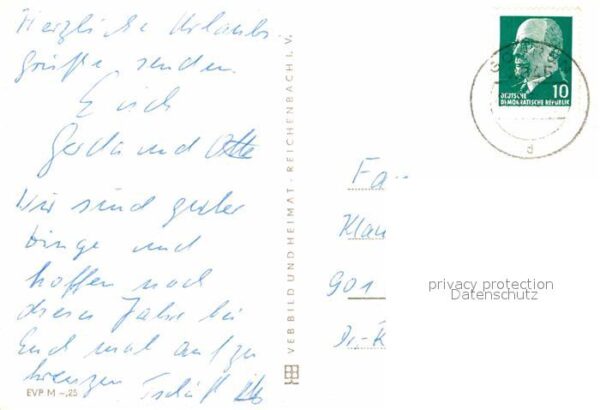 Herzliche Urlaubs-
grüße senden
Euch
Gerda und Otto
Wir sind guter
Dinge und
hoffen noch
dieses Jahr bei
Euch mal aufzu
kreuzen
EVP M –,25
VEB BILD UND HEIMAT · REICHENBACH I. V.
10
DEUTSCHE
DEMOKRATISCHE REPUBLIK
Fa
Klau
901
Dr.-K
privacy protection
Datenschutz